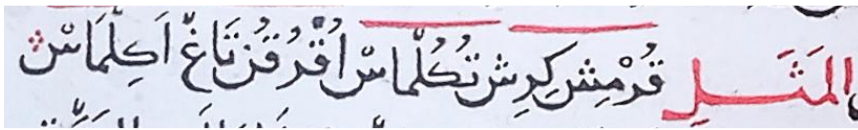 المَثَلِ قُرْمِشْ كِرِشْ تُكُلْمَاسْ اُقْرُقُرْ تَاغْ اَكِلْمَاسْ